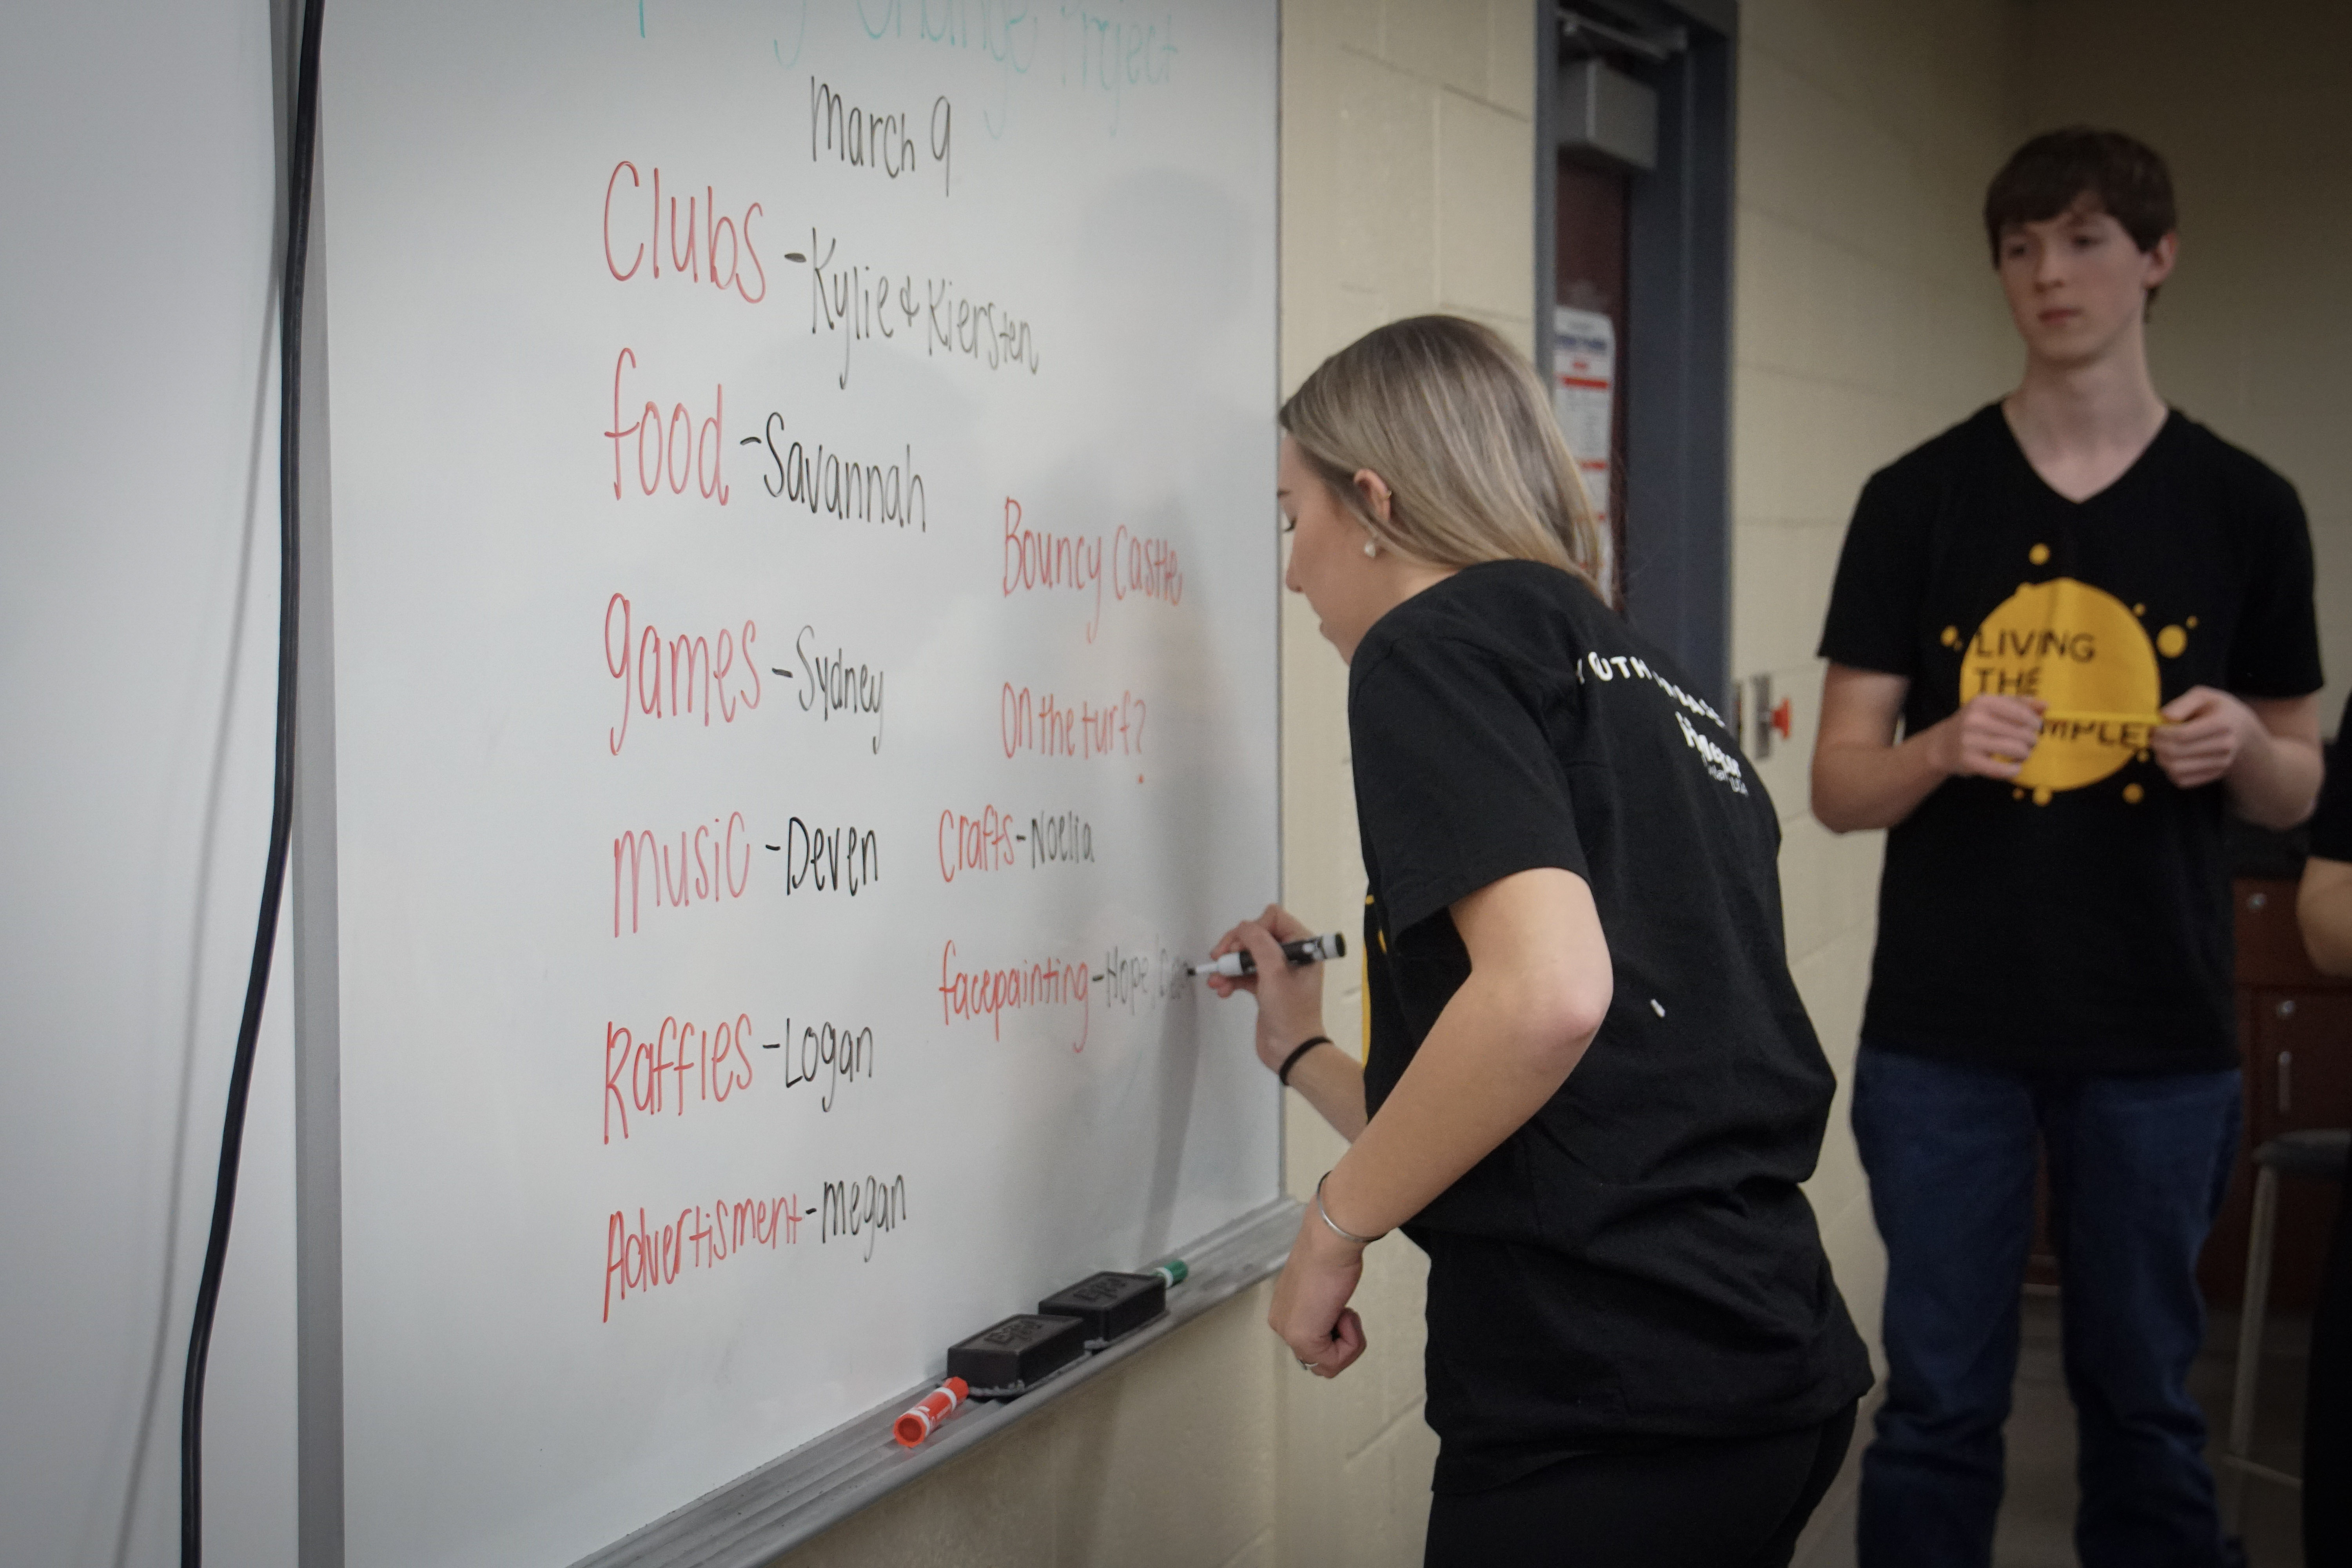 Change Project
March 9
Clubs - Kylie & Kiersten
food - Savannah
Bouncy Castle
games - Sydney
On the turf?
music - Deven
Crafts - Noelia
facepainting - Hope,
Raffles - Logan
Advertisment - Megan
LIVING
THE